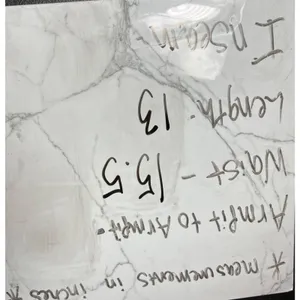 * measurements in inches *
Armpit to Armpit -
Waist - 15.5
Length - 13
Inseam